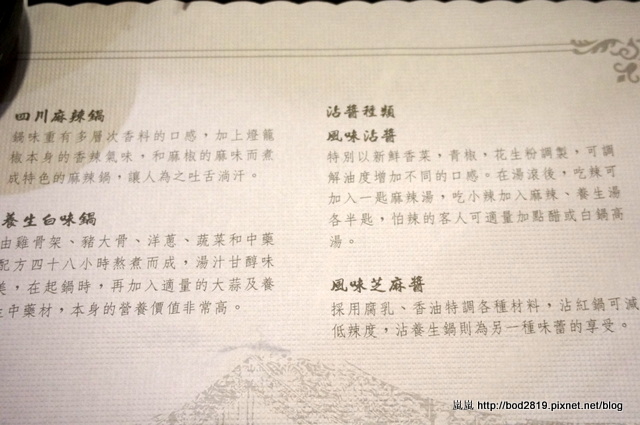 四川麻辣鍋
鍋味重有多層次香料的口感，加上燈籠
椒本身的香辣氣味，和麻椒的麻味而煮
成特色的麻辣鍋，讓人為之吐舌淌汗。
養生白味鍋
由雞骨架、豬大骨、洋蔥、蔬菜和中藥
配方四十八小時熬煮而成，湯汁甘醇味
美，在起鍋時，再加入適量的大蒜及養
生中藥材，本身的營養價值非常高。
沾醬種類
風味沾醬
特別以新鮮香菜，青椒，花生粉調製，可調
解油度增加不同的口感。在湯滾後，吃辣可
加入一匙麻辣湯，吃小辣加入麻辣、養生湯
各半匙，怕辣的客人可適量加點醋或白鍋高
湯。
風味芝麻醬
採用腐乳、香油特調各種材料，沾紅鍋可減
低辣度，沾養生鍋則為另一種味蕾的享受。
嵐嵐 http://bod2819.pixnet.net/blog